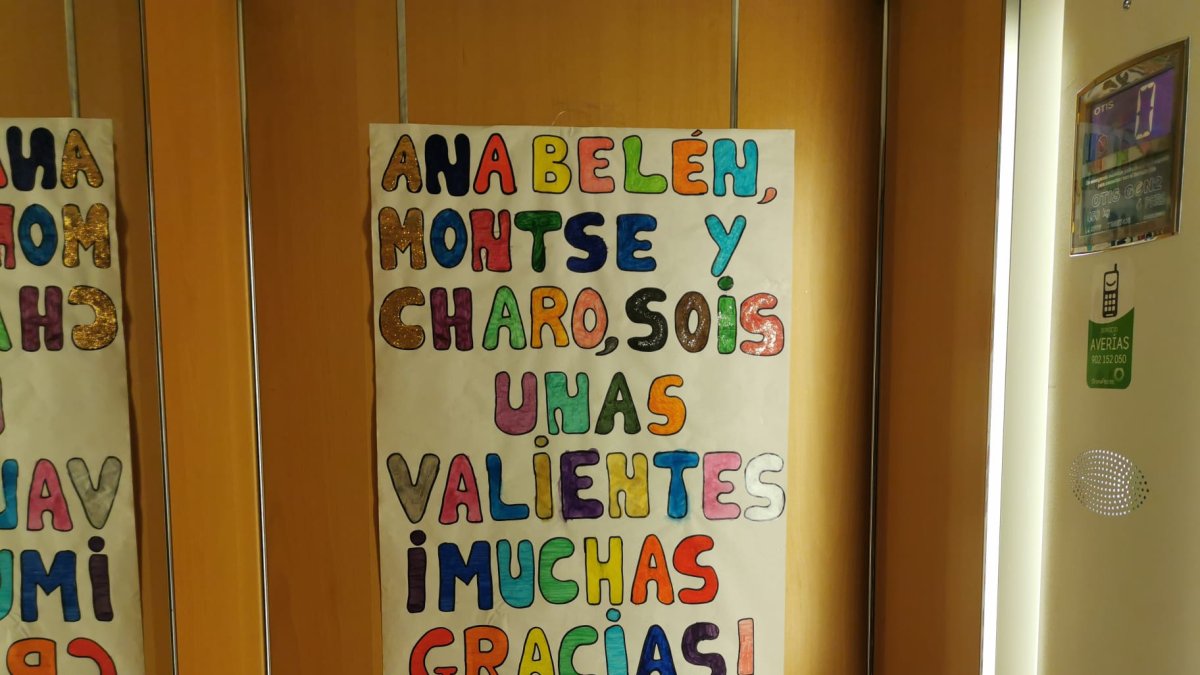 ANA BELÉN,
MONTSE Y
CHARO, SOIS
UNAS
VALIENTES
¡MUCHAS
GRACIAS!
OTIS
0
OTIS GeN2
SERVICIO
AVERÍAS
902 152 050